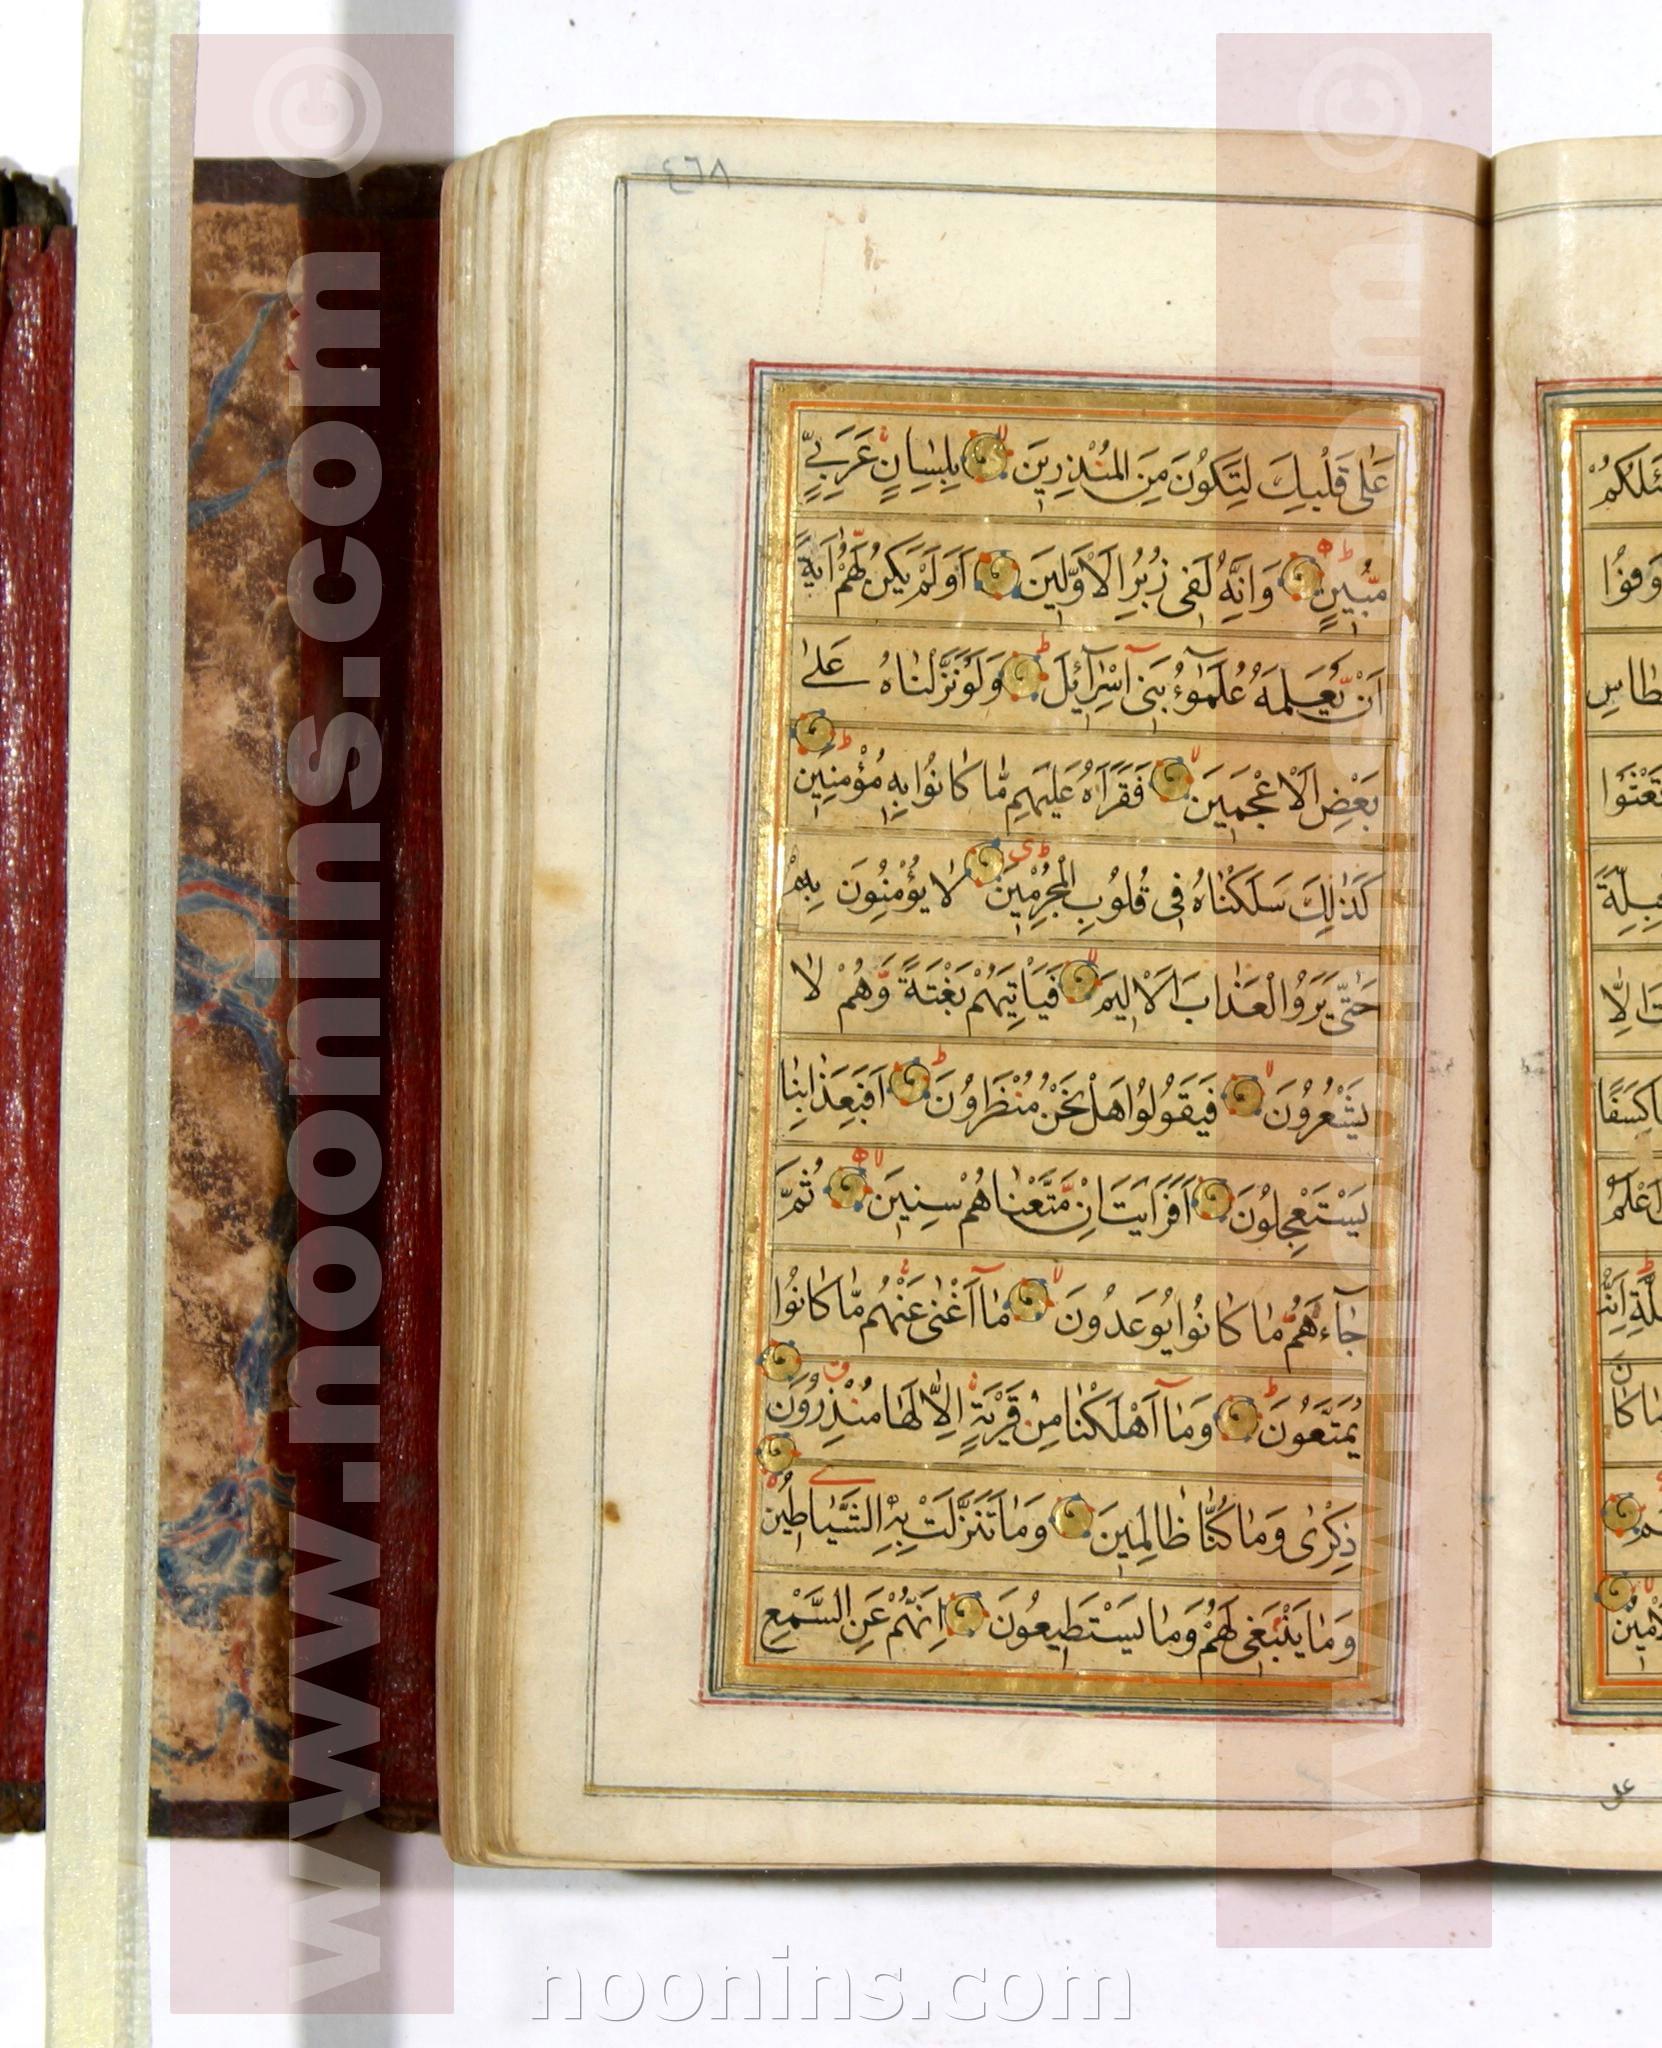 ٤٦٨
عَلىٰ قَلْبِكَ لِتَكُونَ مِنَ الْمُنْذِرِينَ بِلِسٰانٍ عَرَبِيٍّ
مُّبِينٍ وَاِنَّهُ لَفِى زُبُرِ الْاَوَّلِينَ اَوَلَمْ يَكُنْ لَّهُمْ اٰيَةً
اَنْ يَّعْلَمَهُ عُلَمٰٓؤُا بَنِىٓ اِسْرٰٓائِلَ وَلَوْ نَزَّلْنٰاهُ عَلىٰ
بَعْضِ الْاَعْجَمِينَ فَقَرَاَهُ عَلَيْهِمْ مّٰا كٰانُوا بِهِ مُؤْمِنِينَ
كَذٰلِكَ سَلَكْنٰاهُ فِى قُلُوبِ الْمُجْرِمِينَ لٰا يُؤْمِنُونَ بِهِ
حَتّٰى يَرَوُا الْعَذٰابَ الْاَلِيمَ فَيَاْتِيَهُمْ بَغْتَةً وَّهُمْ لٰا
يَشْعُرُونَ فَيَقُولُوا هَلْ نَحْنُ مُنْظَرُونَ اَفَبِعَذٰابِنٰا
يَسْتَعْجِلُونَ اَفَرَاَيْتَ اِنْ مَّتَّعْنٰاهُمْ سِنِينَ ثُمَّ
جٰٓاءَهُمْ مٰا كٰانُوا يُوعَدُونَ مٰٓا اَغْنىٰ عَنْهُمْ مّٰا كٰانُوا
يُمَتَّعُونَ وَمٰٓا اَهْلَكْنٰا مِنْ قَرْيَةٍ اِلّٰا لَهٰا مُنْذِرُونَ
ذِكْرٰى وَمٰا كُنّٰا ظٰالِمِينَ وَمٰا تَنَزَّلَتْ بِهِ الشَّيٰاطِينُ
وَمٰا يَنْبَغِى لَهُمْ وَمٰا يَسْتَطِيعُونَ اِنَّهُمْ عَنِ السَّمْعِ
وَفُوا
قِبِلَّةَ
كِسَفًا
اَعْلَمُ
على
www.noonins.com ©
www.noonins.com ©
noonins.com